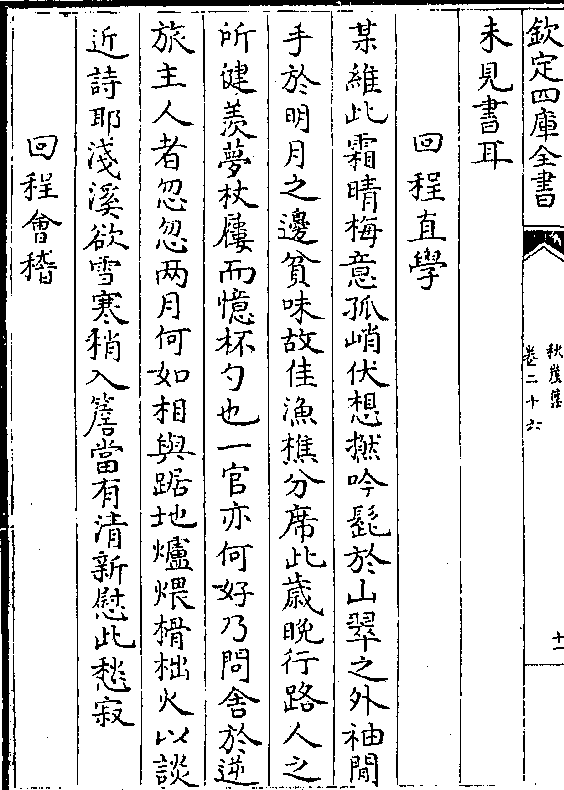 欽定四庫全書
秋崖集
卷二十六
十一
未見書耳
回程直學
某維此霜晴梅意孤峭伏想撚吟髭於山翠之外袖閒
手於明月之邊貧味故佳漁樵分席此歲晚行路人之
所健羡夢杖屨而憶杯勺也一官亦何好乃問舍於逆
旅主人者忽忽两月何如相與踞地爐煨榾柮火以談
近詩耶淺溪欲雪寒稍入簷當有清新慰此愁寂
回程會稽